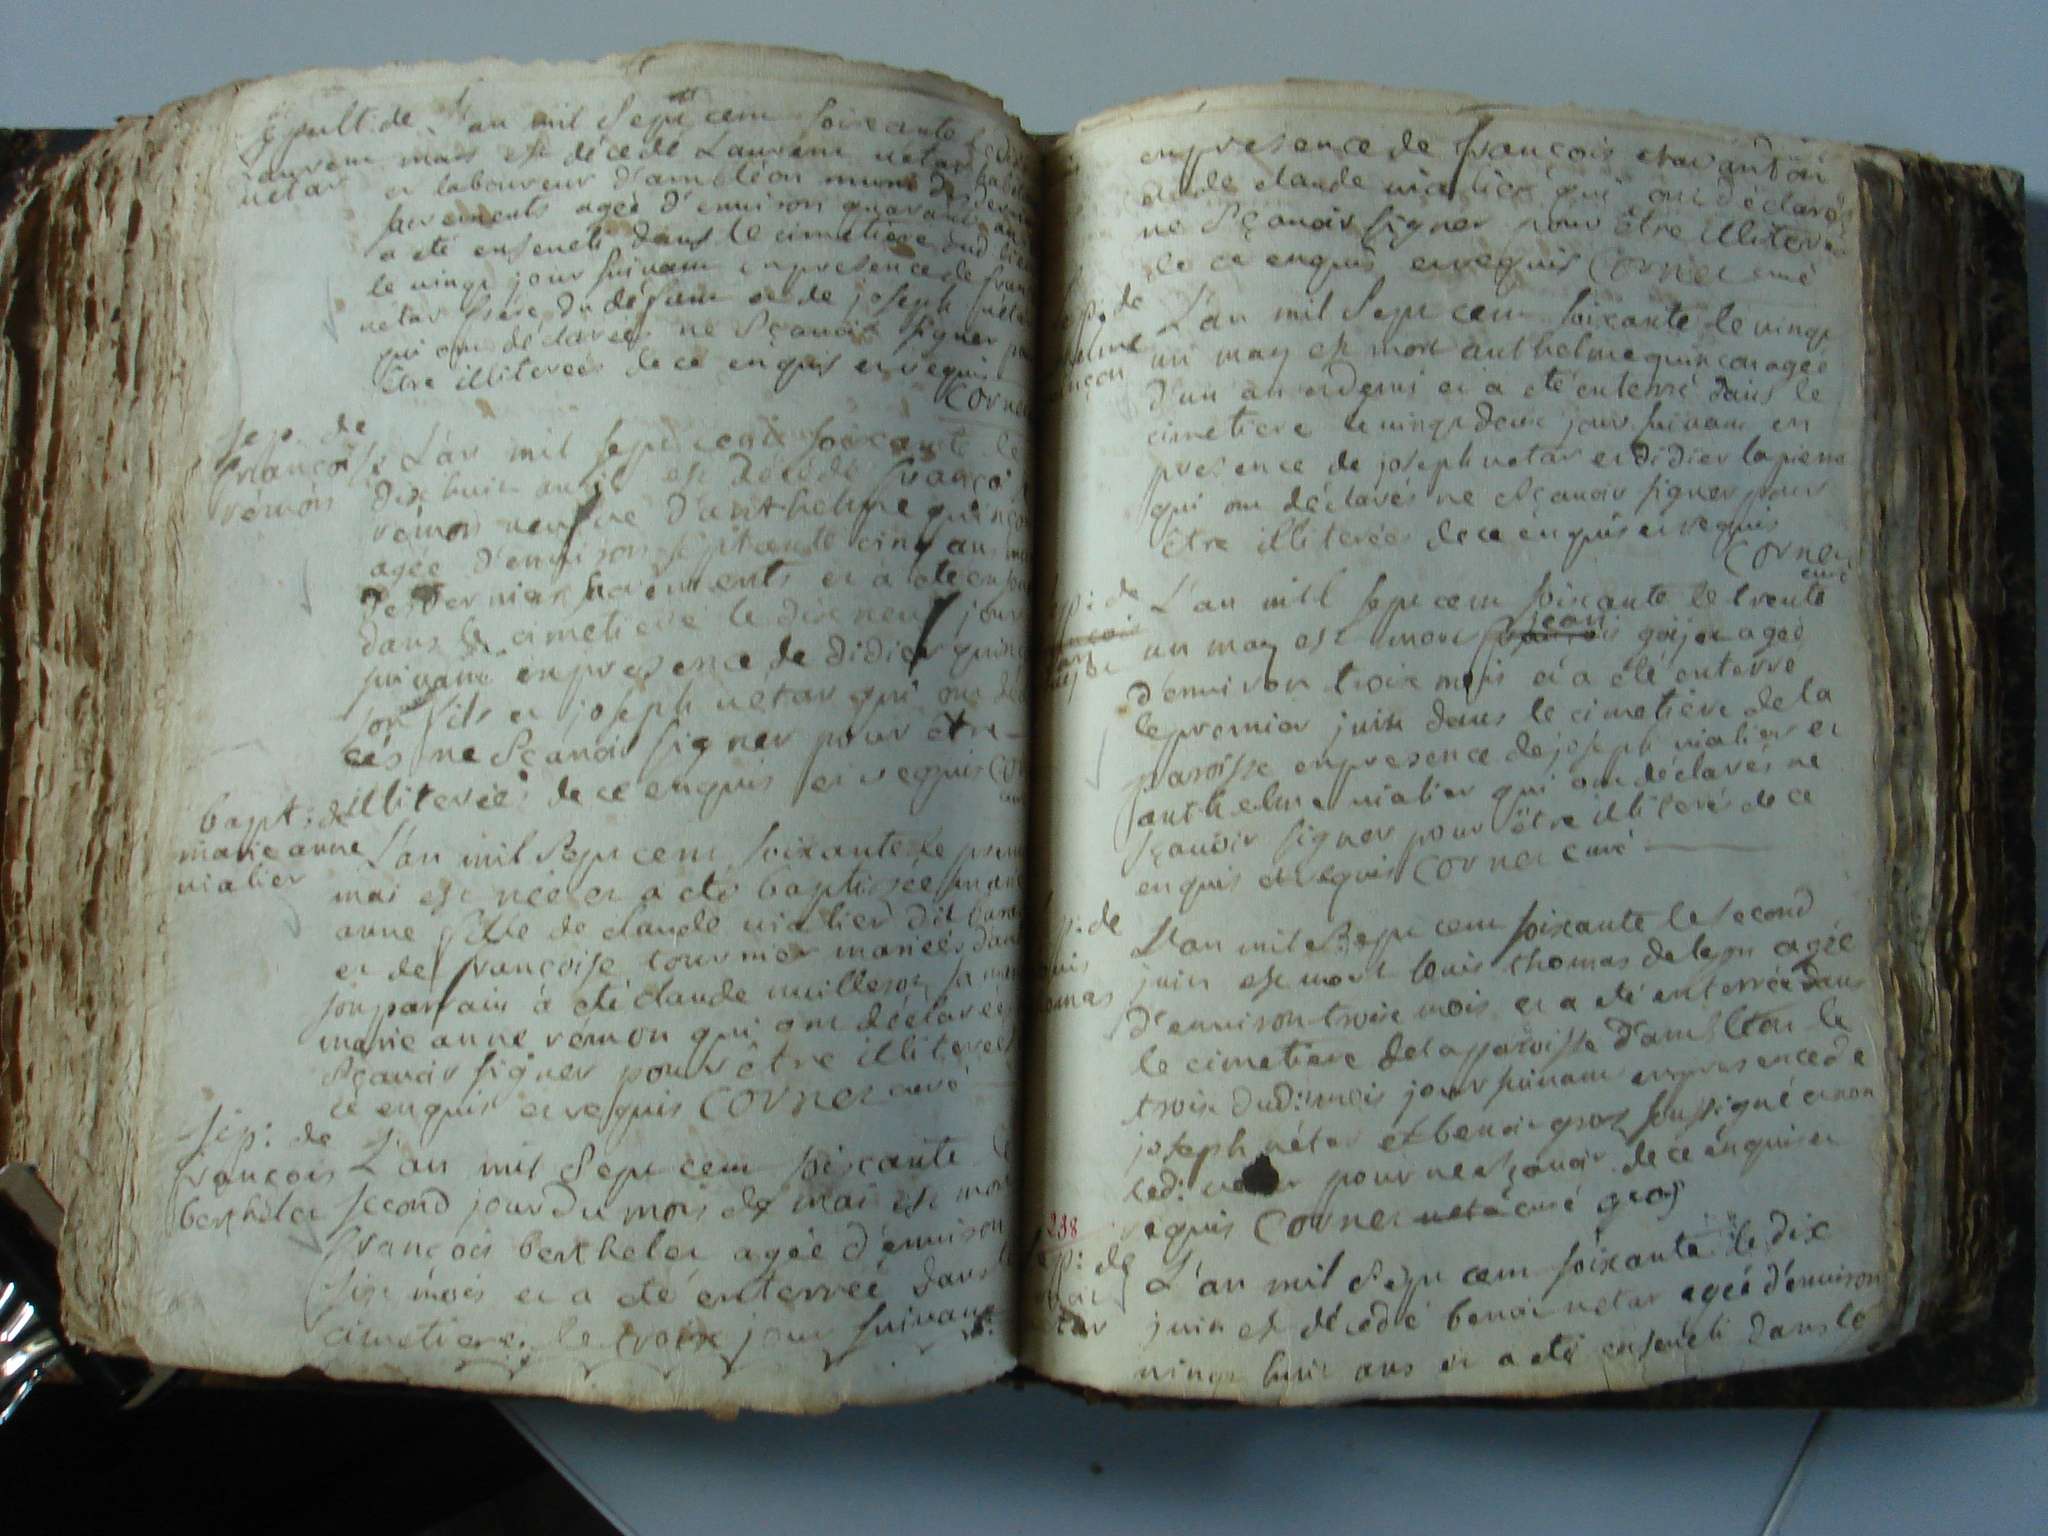 Sepult. de L'an mil Sept cent soixante le dix
Laurent mars est décédé Laurent uétar habit
uétar et laboureur d'ambléon muni des dernie
sacrements agée d'environ quarante ans
a été enseueli dans le cimetiere dud lieu
le vingt jour suivant en presence de fran
uétar frere du défunt et de joseph uétar
qui ont déclarées ne Sçauoir signer pou
être illiterées de ce enquis et requis
Cornet
sep. de
françoise L'an mil sept cent soixante le
rémon dix huit auril est décédé françoi
rémon veufve d'anthelme quinço
agée d'environ septante cinq ans
des dernier sacrements et a été ense
dans le cimetiere le dix neuf jour
suivant en presence de didier quinç
son fils et joseph uétar qui ont décl
rés ne Sçauoir signer pour être
bapt: de illiterées de ce enquis et requis Cor
marie anne L'an mil Sept cent soixante le premi
uialier mai est née et a été baptisée marie
anne fille de claude uialier dit bara
et de françoise tournier mariées dont
son parrain à été claude uuillerot sa mar
marie anne rémon qui ont déclarées
Sçauoir signer pour être illiterées
ce enquis et requis Cornet curé
sep: de
françois L'an mil Sept cent soixante l
berthelet second jour du mois de mai est mor
françois berthelet agée d'environ
six mois et a été enterreé dans le
cimetiere le troix jour suivant
en presence de françois chavanton
et de claude uialier qui ont déclarés
ne Sçauoir signer pour être illiteré
de ce enquis et requis Cornet curé
sep. de L'an mil Sept cent soixante le vingt
un may est mort anthelme quinçon agée
d'un an et demi et a été enterré dans le
cimetiere le vingt deux jour suivant en
presence de joseph uetar et didier lapierre
qui ont déclarés ne Sçauoir signer pour
être illiterées de ce enquis et requis
Cornet
curé
sep: de L'an mil sept cent soixante le trente
jean
un may est mort françois goijet agée
d'environ troix mois et a été enterré
le premier juin dans le cimetiere de la
paroisse en presence de joseph uialier et
anthelme uialier qui ont déclarés ne
sçauoir signer pour être illiteré de ce
enquis et requis Cornet curé
sep: de L'an mil Sept cent soixante le second
juin est mort louis thomas de leyn agée
d'environ troix mois et a été enterrée dans
le cimetiere de la paroisse d'ambléon le
troix dud: mois jour suivant en presence de
joseph uétar et benoit gros soussigné et non
led: uetar pour ne Sçauoir de ce enquis et
requis Cornet curé gros
238
sep: de L'an mil Sept cent soixante le dix
juin est décédé benoit uetar agée d'environ
vingt huit ans et a été enseueli dans le